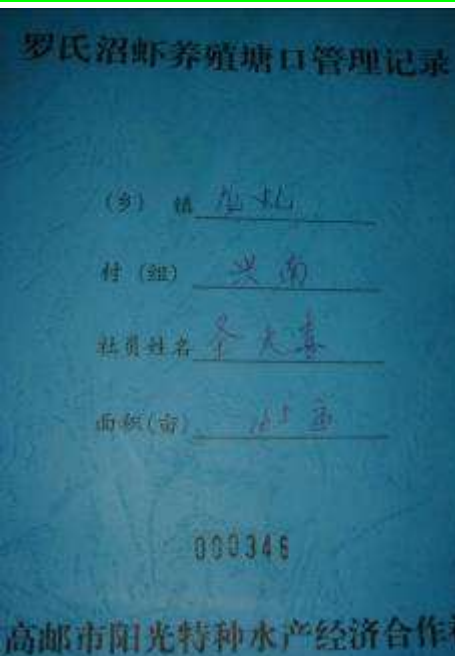 罗氏沼虾养殖塘口管理记录
(乡) 镇
村 (组) 兴南
社员姓名
面积(亩)
000346
高邮市阳光特种水产经济合作